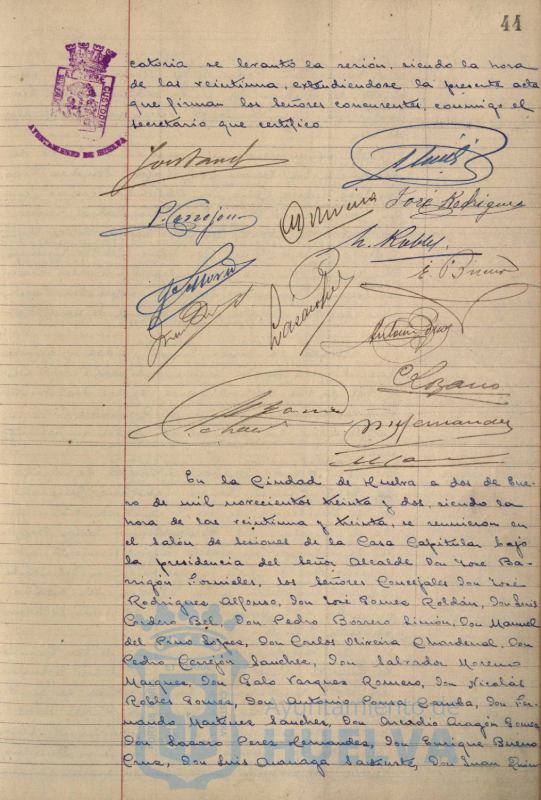 44
catoria se levantó la sesión, siendo la hora
de las veintiuna, extendiendose la presente acta
que firman los señores concurrentes, conmigo el
secretario que certifico
AYUNTAMIENTO DE HUELVA
P. Cerrejon
Oliveira
José Rodriguez
N. Robles
E. Bueno
Antonio Ponce
C. Lozano
Hernandez
En la Ciudad de Huelva a dos de Ene-
ro de mil novecientos treinta y dos, siendo la
hora de las veintiuna y treinta, se reunieron en
el salón de sesiones de la Casa Capitular bajo
la presidencia del Señor Alcalde Don José Ba-
rrigón Fornieles, los señores Concejales Don José
Rodriguez Alfonso, Don José Gomez Roldán, Don Luis
Cordero Bel, Don Pedro Borrero Limón, Don Manuel
del Pino Lopez, Don Carlos Oliveira Chardenal, Don
Pedro Cerrejón Sanchez, Don Salvador Moreno
Marquez, Don Galo Vazquez Romero, Don Nicolás
Robles Gomez, Don Antonio Ponce Gamba, Don Fer-
nando Martinez Sanchez, Don Arcadio Aragón Gomez
Don Lazaro Perez Hernandez, Don Enrique Bueno
Cruz, Don Luis Don Juan Quin
Ayuntamiento de
HUELVA